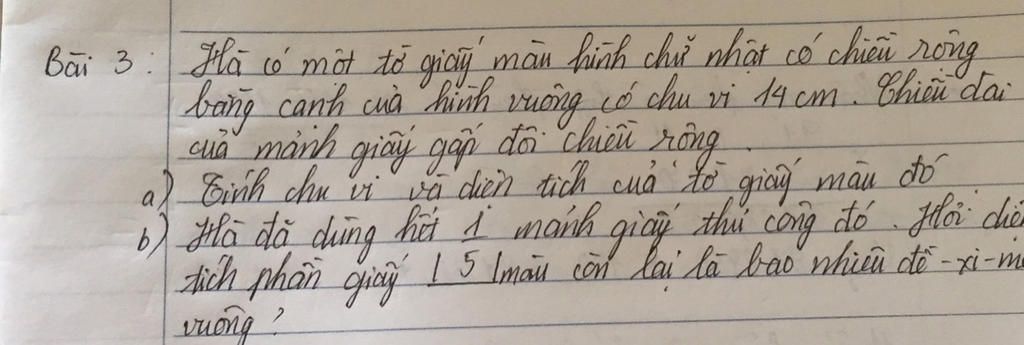 Bài 3: Hà có một tờ giấy màu hình chữ nhật có chiều rộng
bằng cạnh của hình vuông có chu vi 14 cm. Chiều dài
của mảnh giấy gấp đôi chiều rộng.
a) Tính chu vi và diện tích của tờ giấy màu đó
b) Hà đã dùng hết 1 mảnh giấy thủ công đó. Hỏi diện
tích phần giấy | 5 | màu còn lại là bao nhiêu đề-xi-mé
vuông?